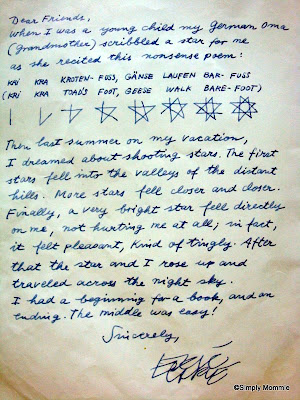 Dear Friends,
When I was a young child my German Oma
(grandmother) scribbled a star for me
as she recited this nonsense poem:
KRI KRA KROTEN-FUSS, GÄNSE LAUFEN BAR-FUSS
(KRI KRA TOAD'S FOOT, GEESE WALK BARE-FOOT)
Then last summer on my vacation,
I dreamed about shooting stars. The first
stars fell into the valleys of the distant
hills. More stars fell closer and closer.
Finally, a very bright star fell directly
on me, not hurting me at all; in fact,
it felt pleasant, kind of tingly. After
that the star and I rose up and
traveled across the night sky.
I had a beginning for a book, and an
ending. The middle was easy!
Sincerely,
©Simply Mommie